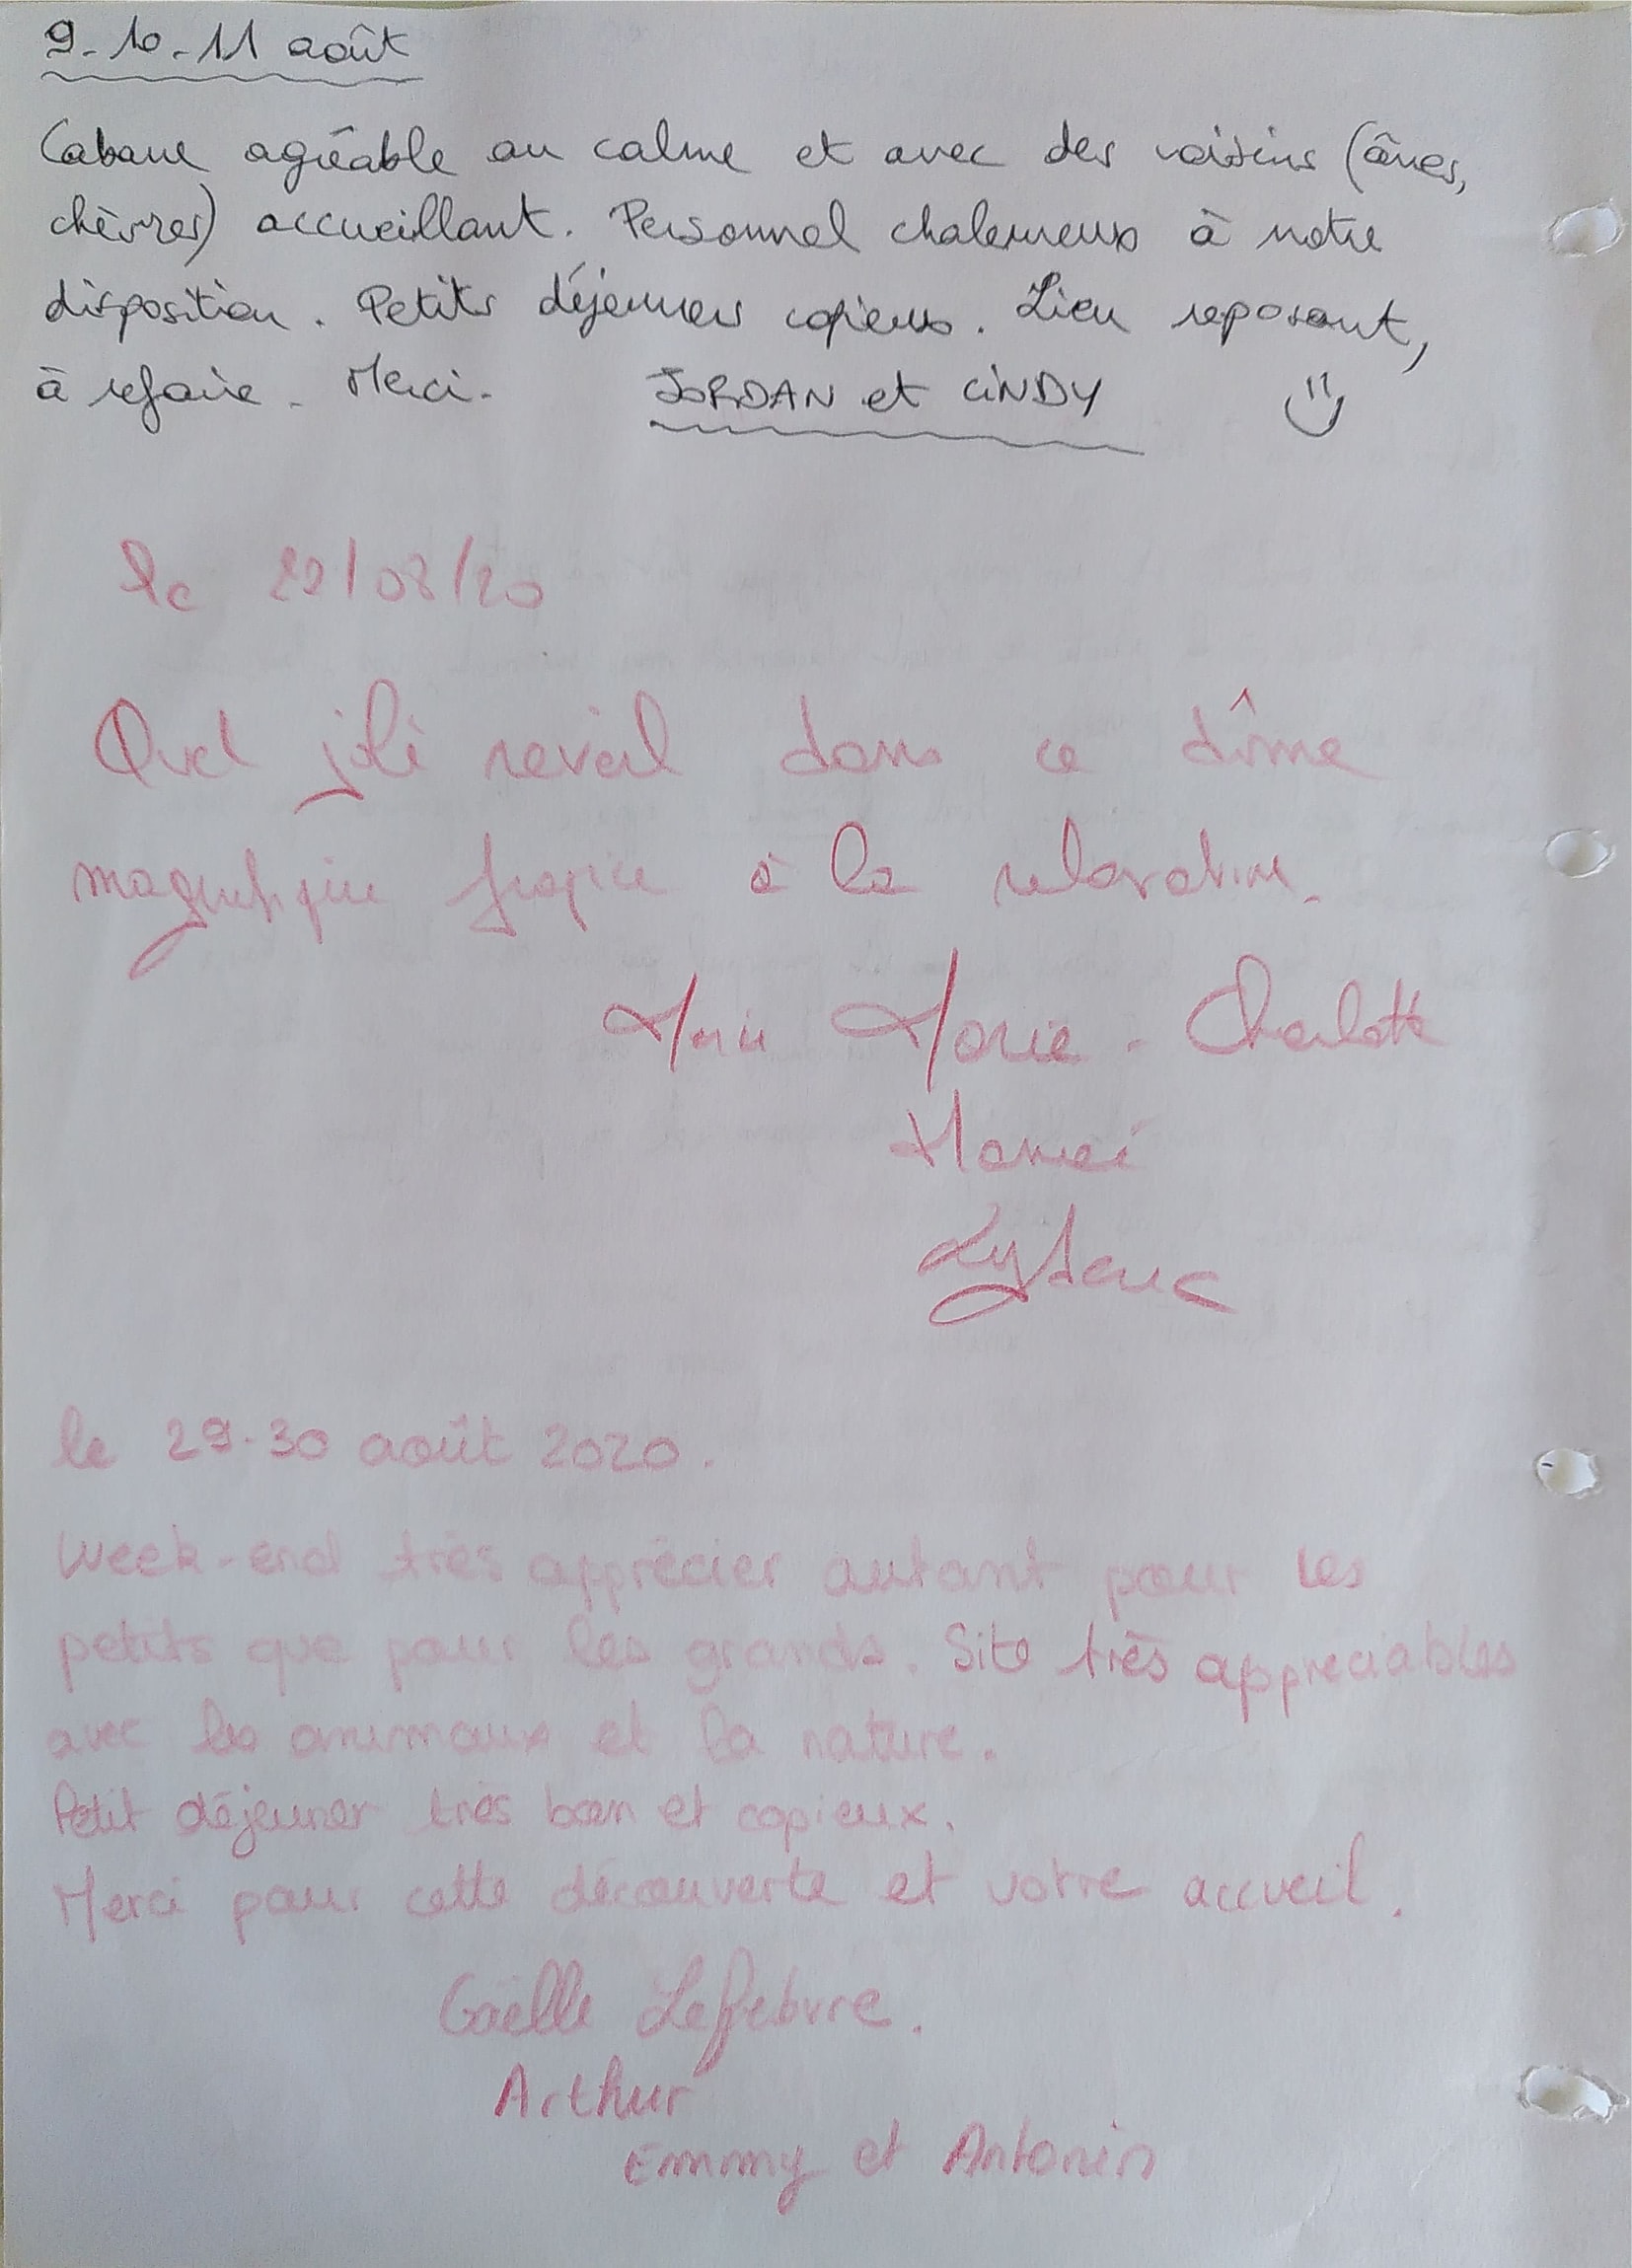 9-10-11 août
Cabane agréable au calme et avec des voisins (ânes,
chèvres) accueillant. Personnel chaleureux à notre
disposition. Petits déjeuners copieux. Lieu reposant,
à refaire. Merci. JORDAN et CiNDY
le 22/08/20
Quel joli reveil dans ce dôme
magnifique propice à la relaxation.
Marie-Charlotte
le 29-30 août 2020.
Week-end très apprécier autant pour les
petits que pour les grands. Site très appréciables
avec les animaux et la nature.
Petit déjeuner très bon et copieux.
Merci pour cette découverte et votre accueil.
Gaëlle Lefebvre.
Arthur
Emmy et Antonin